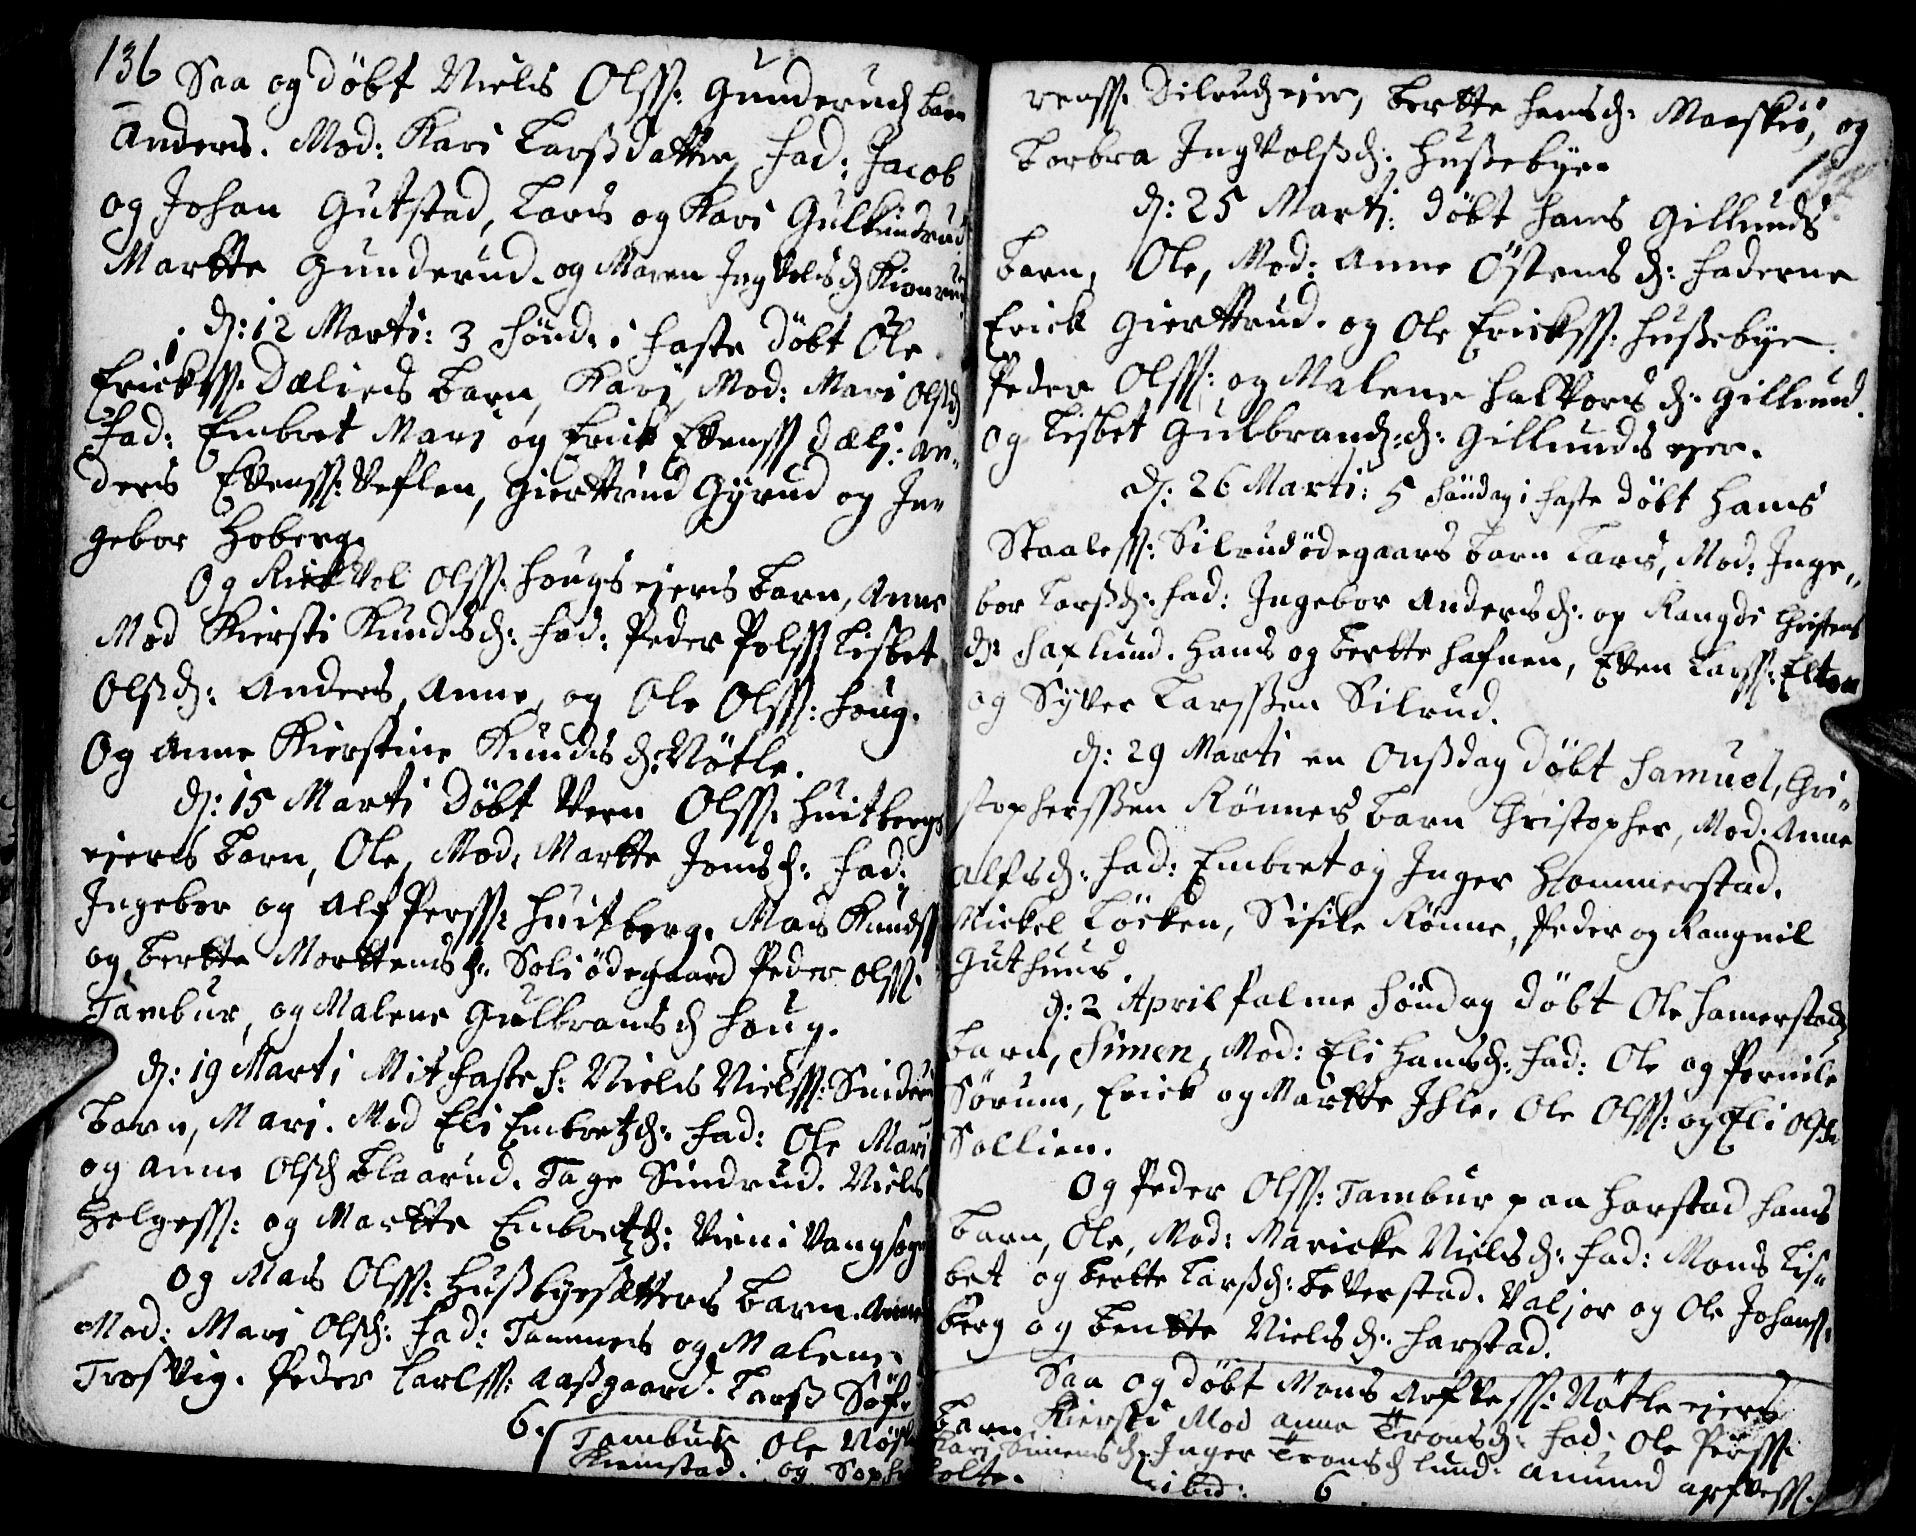 136
Saa og döbt Niels Olss: Gunderuds barn
Anders. Mod: Kari Larsdatter, fad: Jacob
og Johan Gutstad, Lars og Kari Gulkindrud
Martte Gunderud. og Maren Ingvolds d
d: 12 Marti: 3 Sönd: i faste döbt Ole
Ericks: Dæliens barn, Kari, Mod: Mari Ols d
fad: Embret Mari og Erick Evens: Dæli: An-
ders Evenss: Veflen, Gierttrud Gyrud og In-
gebor Hoberg.
Og Rickvol Olss: Hougs eiers barn, Anne
Mod Kiersti Knuds d: fad: Peder Polss Lisbet
Olsd: Anders, Anne, og Ole Olss: Houg.
Og Anne Kierstine Knuds d: Nötle.
d: 15 Marti Döbt Vern Olss: Huitbergs
eiers barn, Ole, Mod: Martte Jons d: fad:
Ingebor og Alf Perss: Huitberg. Mas Knuds
og Bertte Morttens d: Soliödegaard Peder Olss:
Tambur, og Malene Gulbrans d Houg.
d: 19 Marti Mitfaste S: Niels Nielss: Sinderu
barn, Mari. Mod Eli Embretz d: fad: Ole Mari
og Anne Olsd Blaarud. Tage Sindrud. Niels
Helgess: og Martte Embretz d: Vien i Vangsogn
Og Mas Olss: Hussbyesætters barn. Anne
Mod: Mari Olsd: fad: Tommes og Malene
Trosvig. Peder Larss: Aassgaard. Lars Söf
6. Tambur Ole Nöstl
Kiemstad. og Soph
renss: Silrudz eier, Bertte Hansd: Maaskie, og
Borbra Ingvolsd: Hussebye
d: 25 Marti: döbt Hans Gillunds
barn, Ole, Mod: Anne Östens d: fadderne
Erick Gierttrud. og Ole Erickss: Hussebye.
Peder Olss: og Malene Halvors d: Gillund.
og Lisbet Gulbrand: d: Gillunds eier.
d: 26 Marti: 5 Söndag i faste döbt Hans
Staaless: Silrudödegaars barn Lars, Mod: Inge-
bor Larsd: fad: Ingebor Anders d: og Rangdi Christens
d: Saxlund. Hans og Bertte Hafnen, Even Larss: Elton
og Syver Larssen Silrud.
d: 29 Marti en Onssdag döbt Samuel, Chri-
stopherssen Rönnes barn Christopher, Mod: Anne
Alfs d: fad: Embret og Inger Hommerstad.
Mickel Löcken, Sisile Rönne, Peder og Rangnil
Guthuus.
d: 2 April Palme Söndag döbt Ole Hamerstads
barn, Simen, Mod: Eli Hans d: fad: Ole og Pernile
Sörum, Erick og Martte Ihle. Ole Olss: og Eli Olsd
Sollien.
Og Peder Olss: Tambur paa Harstad hans
barn, Ole, Mod: Maricke Niels d: fad: Mons Lis-
bet og Bertte Larsd: Beverstad. Valjor og Ole Johanss:
berg og Bentte Niels d: Harstad.
Saa og döbt Mons Arfvess: Nötle eiers
barn Kiersti Mod Anne Trons d: fad: Ole Perss:
Kari Simens d: Inger Trons d Lund. Amund Arfvess:
holte. 6